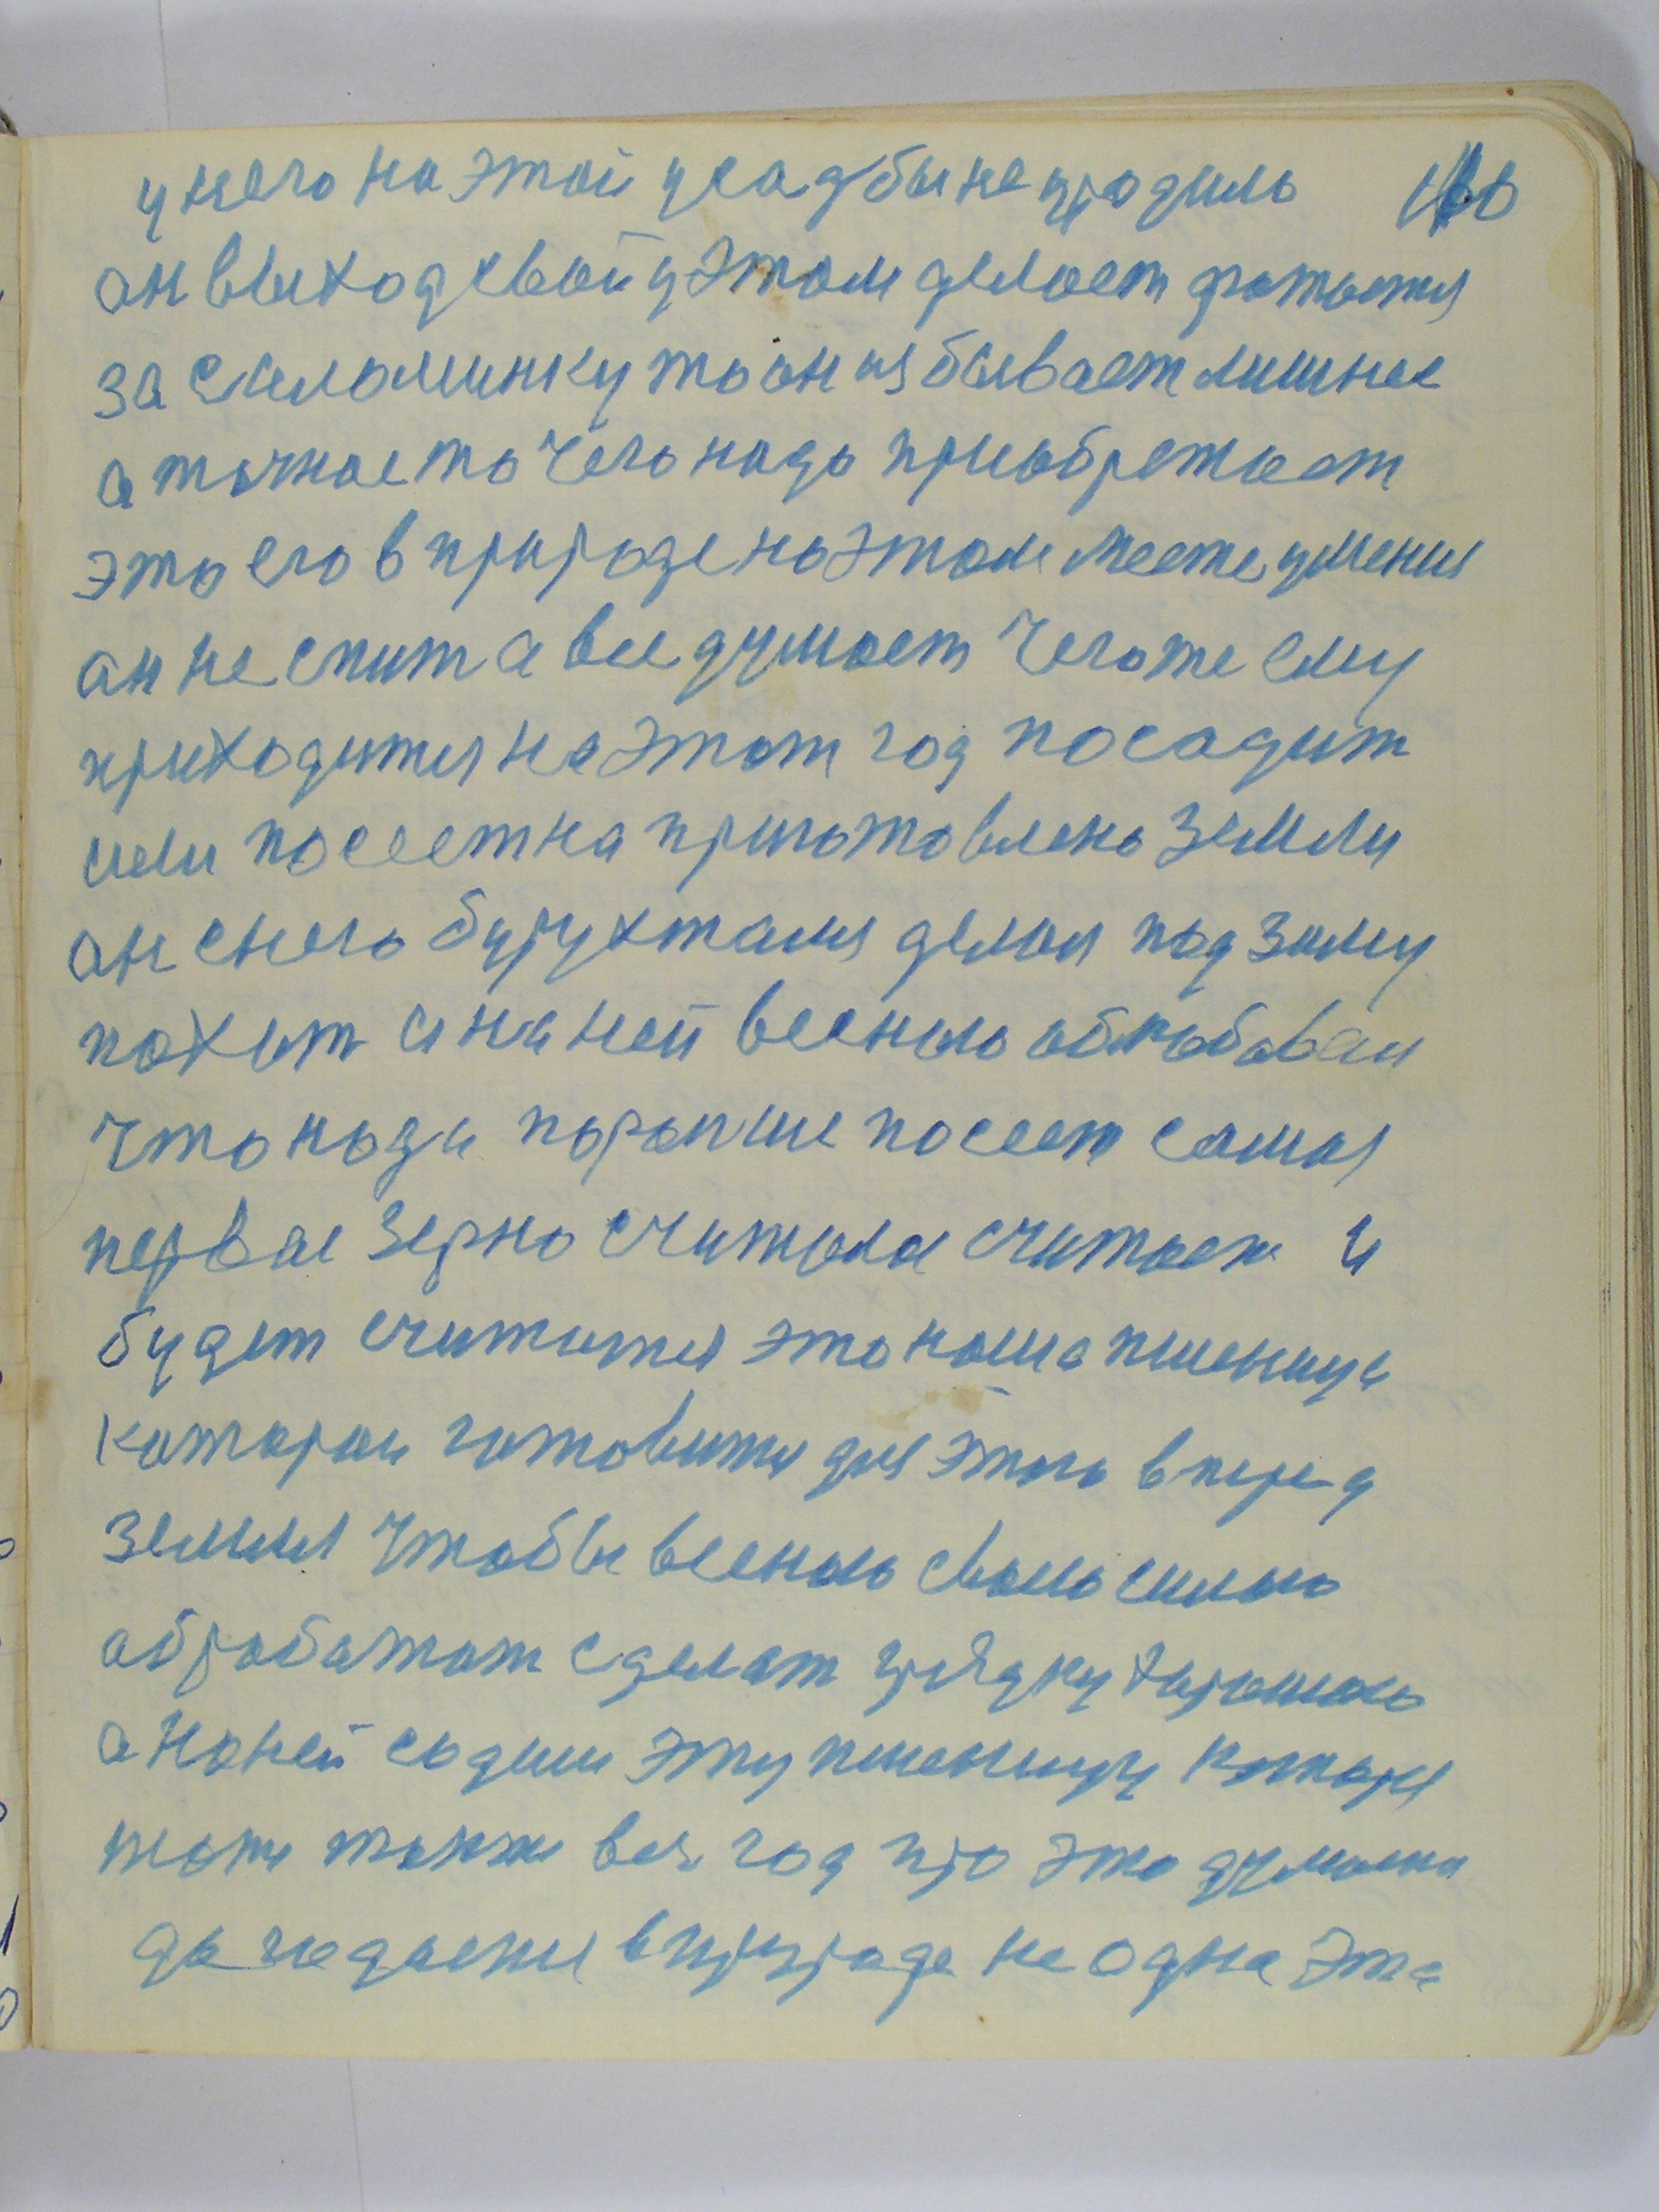 у него на этой усадбы не уродиль
он выход свой у этом делает хотается
за силоминку то он избывает лишнее
а точное то чего надо приобретает
это его в природе на этом месте умения
он не спит а все думает чего же ему
приходится на этот год посадит
или посеет на приготовлено земли
он снего делая под зиму
пахит и на ней весною
что нада пораньше посеет самая
первое зерно считала считает и
будет считится это наша пшеница
каторой готовится для этого вперед
земля чтобы весною своею силою
обработат сделат грядку харошою
а на ней садим эту пшеницу котора
тоже также весь год про это
да гадаеш в природе не одна эта